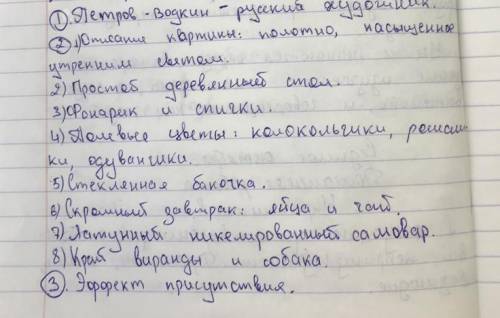 1. Петров-Водкин - русский художник.
2. Описание картины: полотно, насыщенное
утренним светом.
2) Простой деревянный стол.
3) Фонарик и спички.
4) Полевые цветы: колокольчики, ромаш-
ки, одуванчики.
5) Стеклянная баночка.
6) Скромный завтрак: яйца и чай.
7) Латунный никелированный самовар.
8) Край виранды и собака.
3. Эффект присутствия.